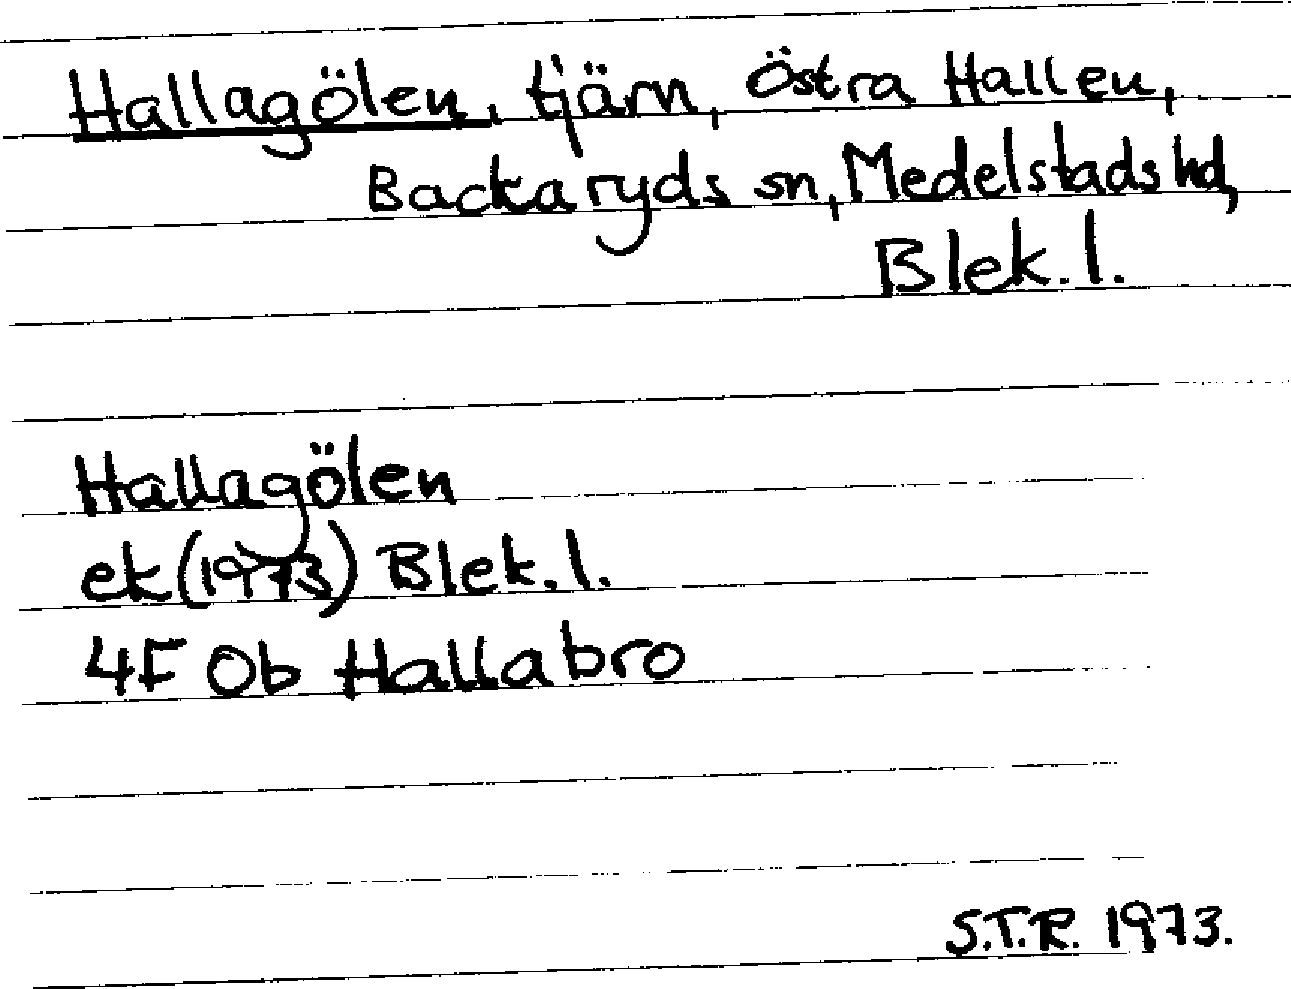 Hallagölen, tjärn, Östra Hallen,
Backaryds sn, Medelstads hd,
Blek. l.
Hallagölen
ek (1973) Blek. l.
4F Ob Hallabro
S.T.R. 1973.